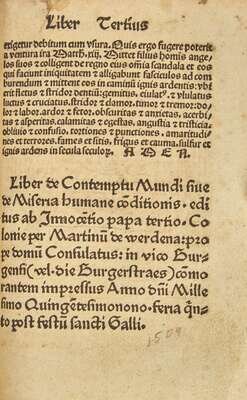 Liber Tertius
exigetur debitum cum vsura. Quis ergo fugere poterit
a ventura ira Matth. xiij. Mittet filius homis ange⸗
los suos & colligent de regno eius omia scandala et eos
qui faciunt iniquitatem & alligabunt fasciculos ad com
burendum & mittent eos in caminū ignis ardentis: vbi
erit fletus & stridor dentiū: gemitus. eiulatꝰ. & vlulatus
luctus & cruciatus. stridor & clamor. timor & tremor: do⸗
lor & labor. ardor & fetor. obscuritas & anxietas. acerbi⸗
tas & asperitas. calamitas & egestas. angustia & tristicia.
obliuio & confusio. tortiones & punctiones. amaritudi⸗
nes et terrores. fames et sitis. frigus et cauma. sulfur et
ignis ardens in secula seculoꝝ. A M E N.
Liber de Contemptu Mundi siue
de Miseria humane cōditionis. edi
tus ab Innocētio papa tertio. Co
lonie per Martinū de werdena: pro
pe domū Consulatus: in vico Bur⸗
gensi (vel. die Burgerstraes) cōmo
rantem impressus Anno dñi Mille
simo Quingētesimonono. feria q̄n⸗
to post festū sancti Galli.
1509